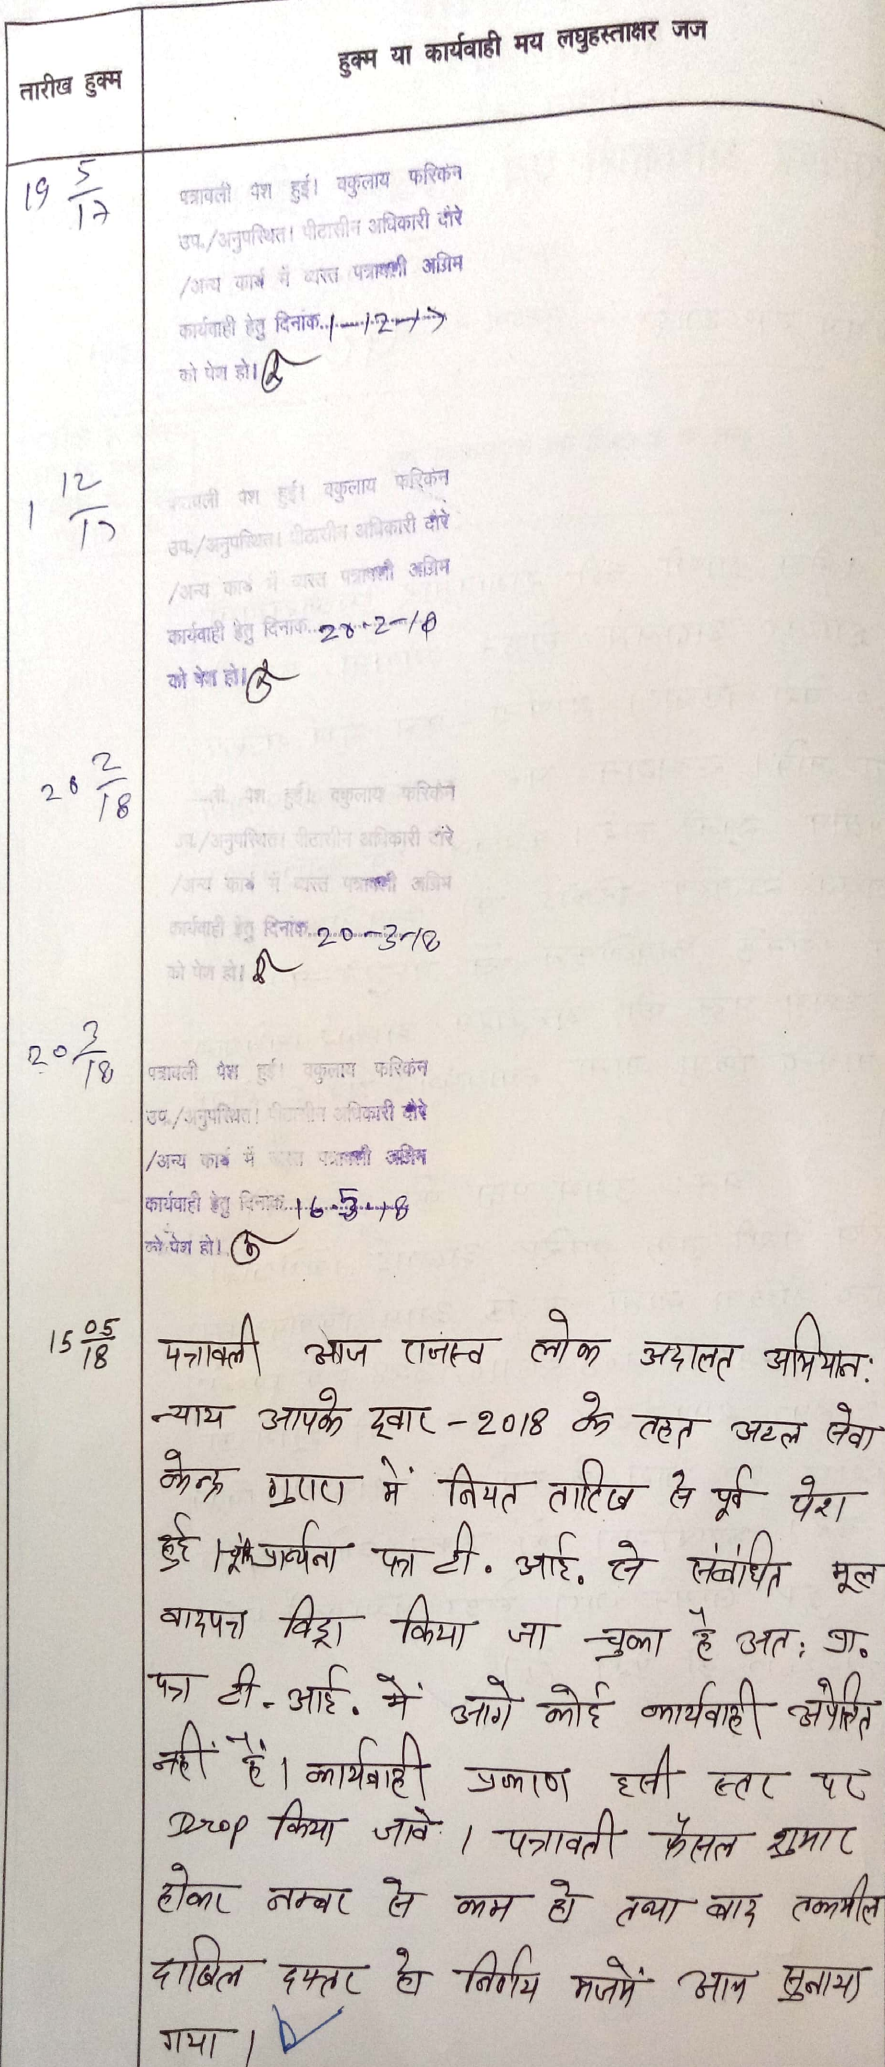 तारीख हुक्म
हुक्म या कार्यवाही मय लघुहस्ताक्षर जज
19 5/17
पत्रावली पेश हुई। वकुलाय फरिकेन
उप./अनुपस्थित। पीठासीन अधिकारी दौरे
/अन्य कार्य में व्यस्त पत्रावली अग्रिम
कार्यवाही हेतु दिनांक 1-12-17
को पेश हो।
1 12/17
पत्रावली पेश हुई। वकुलाय फरिकेन
उप./अनुपस्थित। पीठासीन अधिकारी दौरे
/अन्य कार्य में व्यस्त पत्रावली अग्रिम
कार्यवाही हेतु दिनांक
को पेश हो।
2/18
पेश हुई। वकुलाय फरिकेन
उप./अनुपस्थित। पीठासीन अधिकारी दौरे
/अन्य कार्य में व्यस्त पत्रावली अग्रिम
कार्यवाही हेतु दिनांक 20-3-18
को पेश हो।
20 3/18
पत्रावली पेश हुई। वकुलाय फरिकेन
उप./अनुपस्थित। पीठासीन अधिकारी दौरे
/अन्य कार्य में व्यस्त पत्रावली अग्रिम
कार्यवाही हेतु दिनांक 16-5-18
को पेश हो।
15 05/18
पत्रावली आज राजस्व लोक अदालत अभियान:
न्याय आपके द्वार - 2018 के तहत अटल सेवा
केन्द्र गुरारा में नियत तारिख से पूर्व पेश
हुई। प्रार्थना पत्र टी. आई. से संबंधित मूल
वादपत्र विड्रा किया जा चुका है अत: प्रा.
पत्र टी. आई. में आगे कोई कार्यवाही अपेक्षित
नहीं है। कार्यवाही प्रकरण इसी स्तर पर
Drop किया जावे। पत्रावली फैसल शुमार
होकर नम्बर से कम हो तथा बाद तकमील
दाखिल दफ्तर हो निर्णय मजमें आम सुनाया
गया।